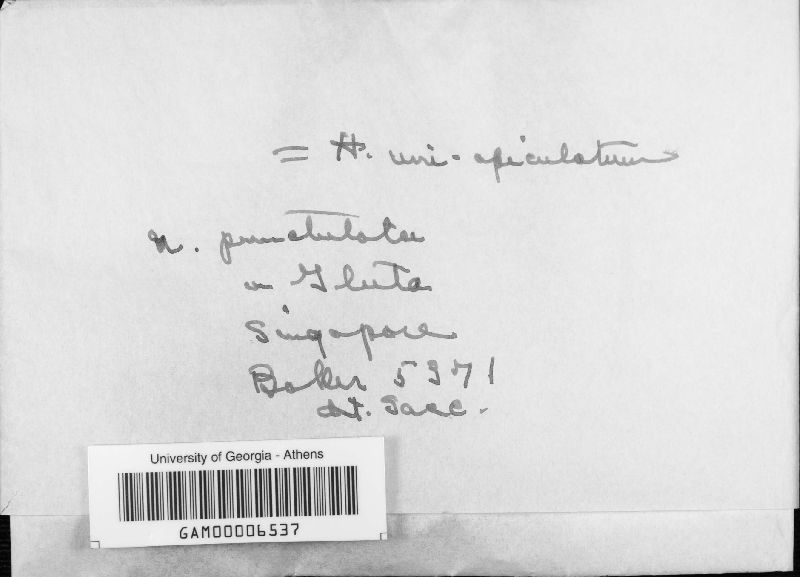 = H. uni-apiculatum
n. punctulatae
on Gluta
Singapore
Baker 5371
det. Sacc.
University of Georgia - Athens
GAM00006537